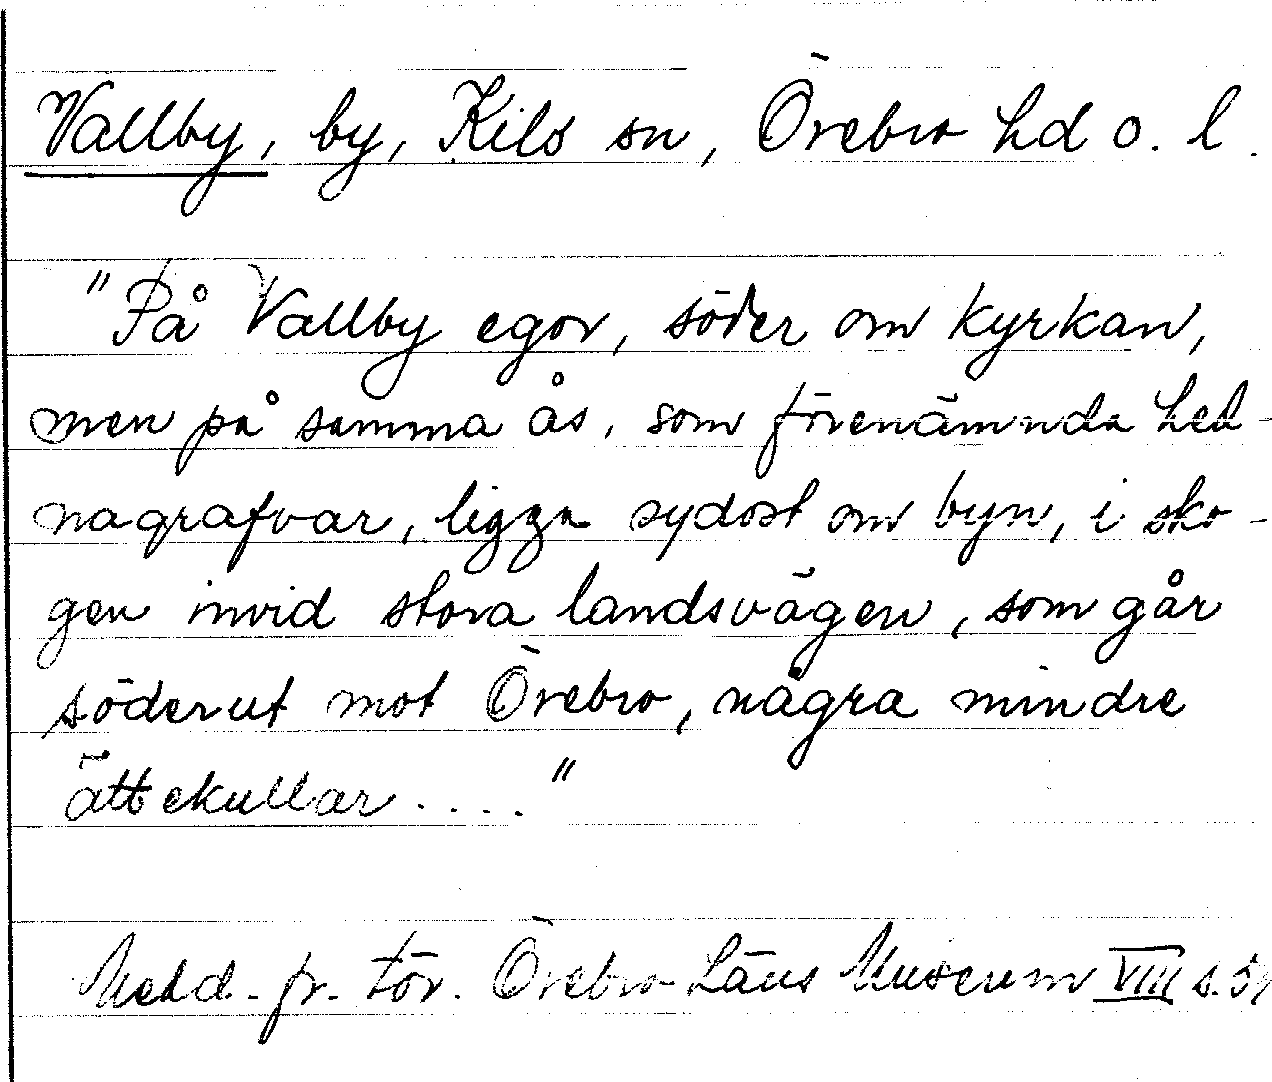 Vallby, by, Kils sn, Örebro hd o. l.
"På Vallby egor, söder om kyrkan,
men på samma ås, som förenämnda hed-
nagrafvar, ligga sydost om byn, i sko-
gen invid stora landsvägen, som går
söderut mot Örebro, några mindre
ättekullar . . . ."
Medd. fr. för. Örebro Läns Museum VIII s.